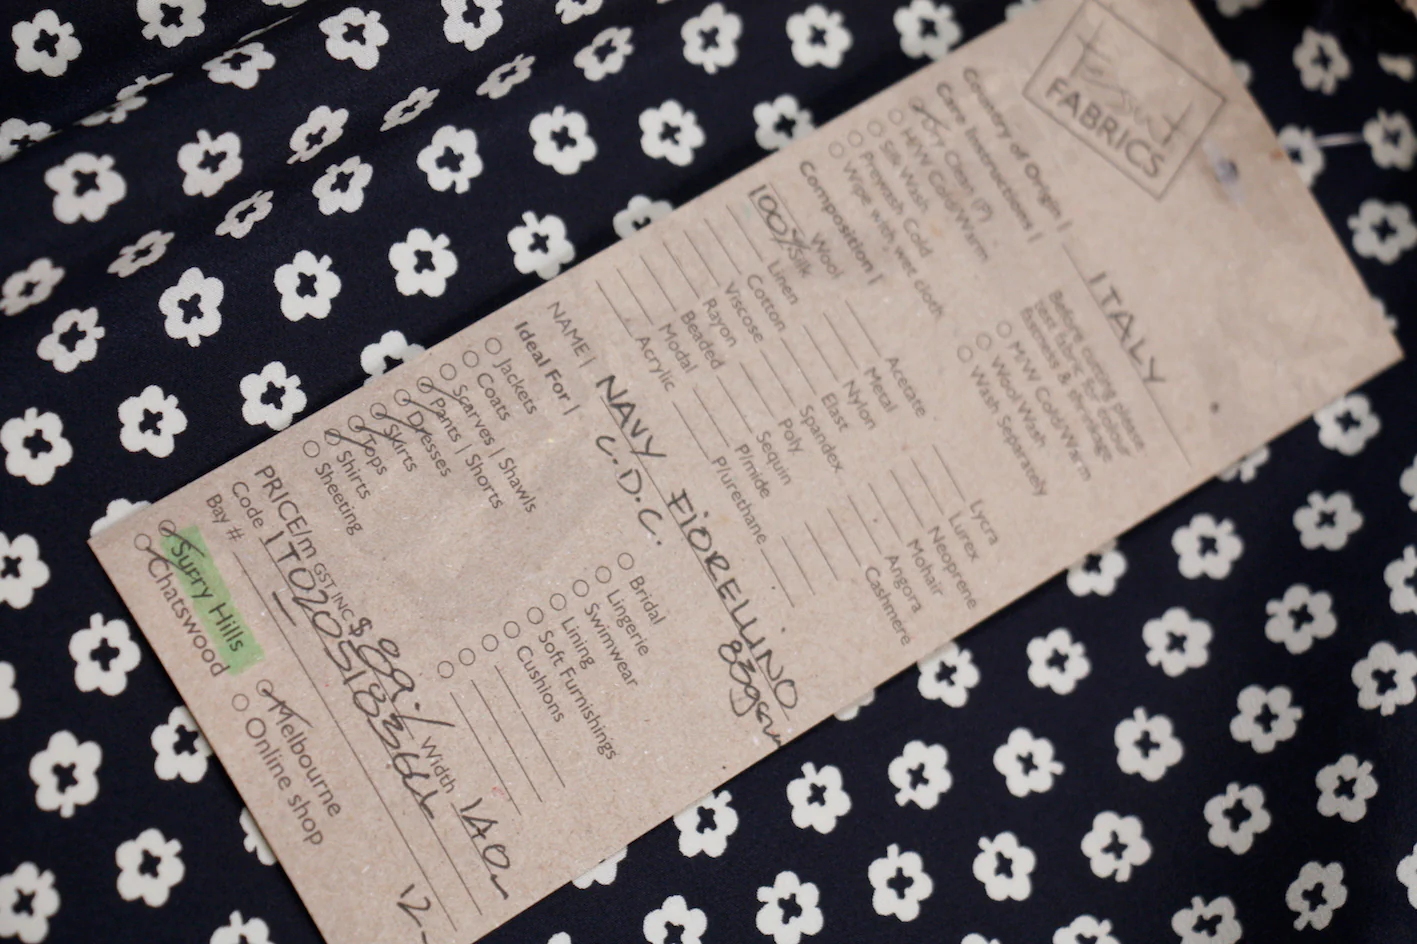 Tessuti
FABRICS
Country of Origin | ITALY
Care Instructions |
Dry Clean (P)
H/W Cold/Warm
Silk Wash
Prewash Cold
Wipe with wet cloth
Before cutting please
test fabric for colour
fastness & shrinkage
M/W Cold/Warm
Wool Wash
Wash Separately
Composition |
100% Silk
Wool
Linen
Cotton
Viscose
Rayon
Beaded
Modal
Acrylic
Acetate
Metal
Nylon
Elast
Spandex
Poly
Sequin
P/mide
P/urethane
Lycra
Lurex
Neoprene
Mohair
Angora
Cashmere
NAME | NAVY FIORELLINO
C.D.C. 83gsm
Ideal For |
Jackets
Coats
Scarves | Shawls
Pants | Shorts
Dresses
Skirts
Tops
Shirts
Sheeting
Bridal
Lingerie
Swimwear
Lining
Soft Furnishings
Cushions
PRICE/m GST INC $ 89./ Width 140
Code
Bay # 12
Surry Hills
Chatswood
Melbourne
Online shop